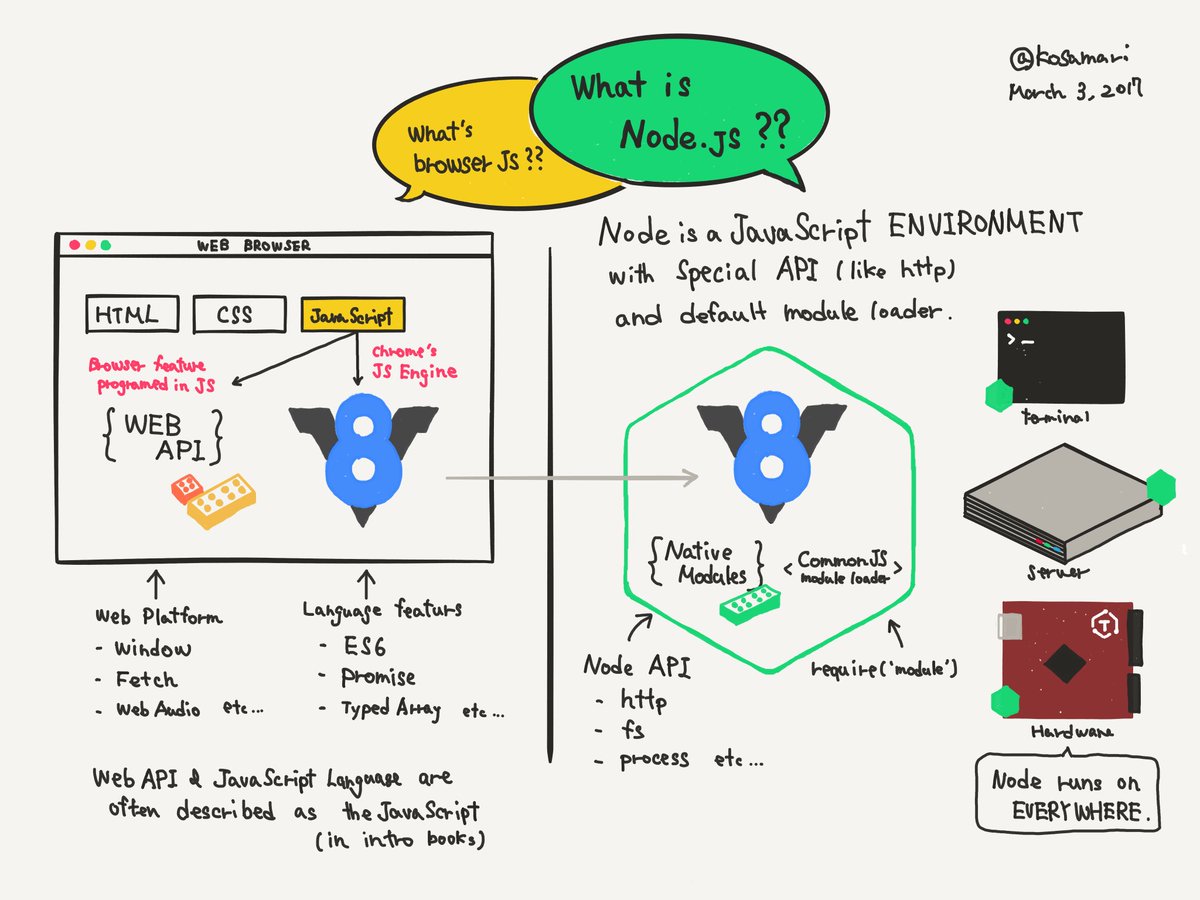 @kosamari
March 3, 2017
What is
Node.js ??
What's
browser JS ??
WEB BROWSER
HTML
CSS
JavaScript
Browser feature
programed in JS
Chrome's
JS Engine
{WEB
API}
8
Web Platform
- Window
- Fetch
- Web Audio etc...
Language featurs
- ES6
- Promise
- Typed Array etc...
Web API & JavaScript Language are
often described as the JavaScript
(in intro books)
Node is a JavaScript ENVIRONMENT
with special API (like http)
and default module loader.
8
{Native
Modules}
<CommonJS
module loader>
Node API
- http
- fs
- process etc...
require('module')
>_
terminal
server
T
Hardware
Node runs on
EVERYWHERE.